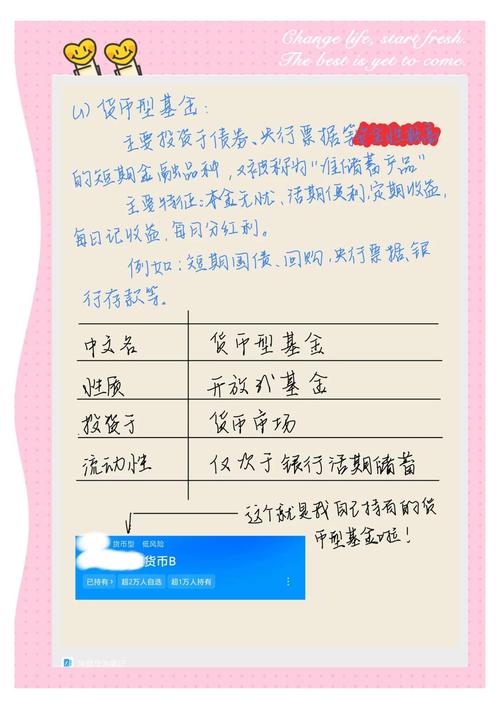 Change life, start fresh.
The best is yet to come.
(1) 货币型基金：
主要投资于债券、央行票据等
的短期金融品种，又被称为“准储蓄产品”
主要特征：本金无忧、活期便利，定期收益，
每日记收益，每月分红利。
例如：短期国债、回购，央行票据、银
行存款等。
中文名 货币型基金
性质 开放式基金
投资于 货币市场
流动性 仅次于银行活期储蓄
这个就是我自己持有的货
币型基金啦！
货币型 低风险
货币B
已持有 超2万人自选 超1万人持有